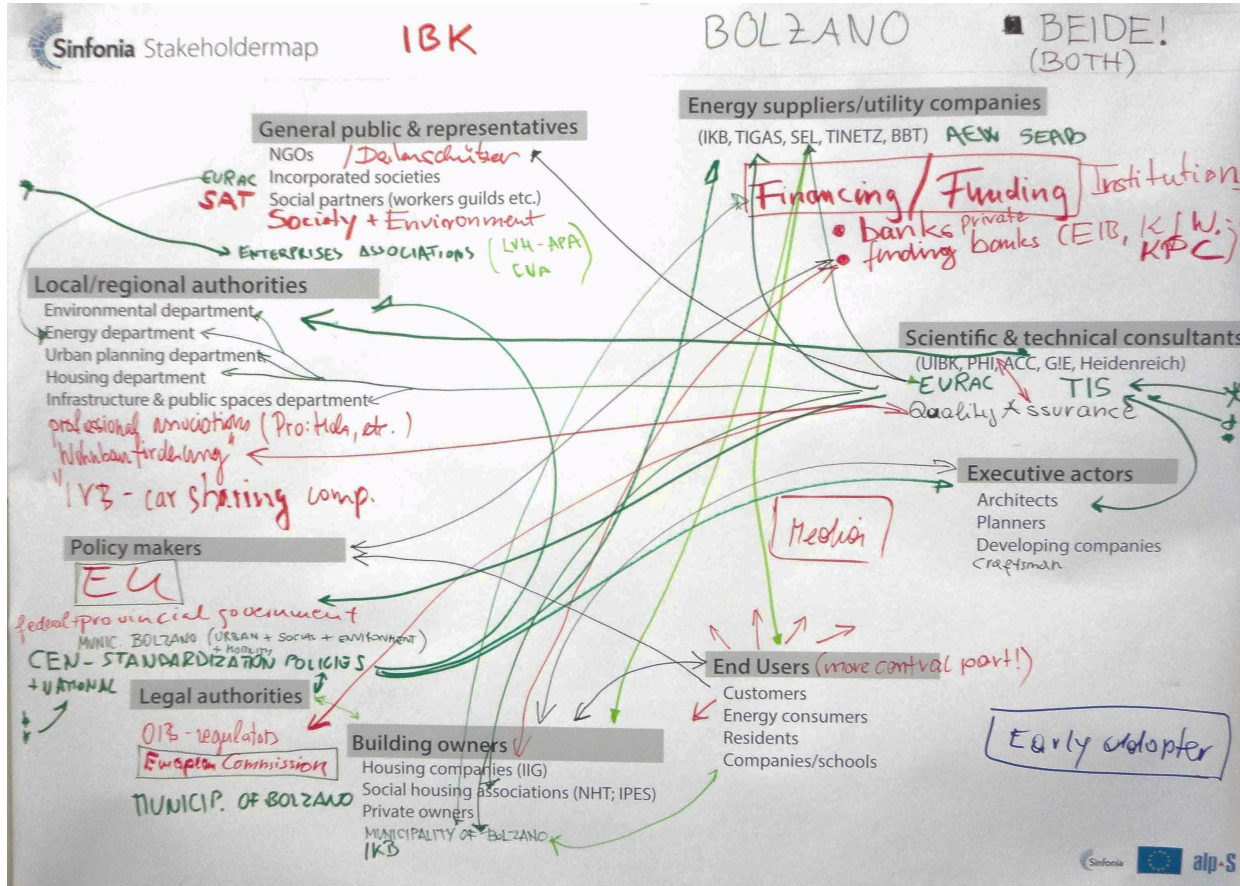 Sinfonia Stakeholdermap
IBK
BOLZANO
BEIDE!
(BOTH)
General public & representatives
NGOs /Datenschützer
EURAC Incorporated societies
SAT Social partners (workers guilds etc.)
Society + Environment
ENTERPRISES ASSOCIATIONS (LVH-APA)
CNA
Energy suppliers/utility companies
(IKB, TIGAS, SEL, TINETZ, BBT) AEW SEAB
Financing / Funding Institution
banks private
funding banks (EIB, KfW,
KPC)
Local/regional authorities
Environmental department
Energy department
Urban planning department
Housing department
Infrastructure & public spaces department
professional associations (Pro:Holz, etc.)
"Wohnbauförderung"
"IVB - car sharing comp.
Scientific & technical consultants
(UIBK, PHI, ACC, G!E, Heidenreich)
EURAC TIS
Quality Assurance
Executive actors
Architects
Planners
Developing companies
Craftsman
Media
Policy makers
EU
federal + provincial government
MUNIC. BOLZANO (URBAN + SOCIAL + ENVIRONMENT)
+ MOBILITY
CEN - STANDARDIZATION POLICIES
+ NATIONAL
Legal authorities
OIB - regulators
European Commission
MUNICIP. OF BOLZANO
Building owners
Housing companies (IIG)
Social housing associations (NHT; IPES)
Private owners
MUNICIPALITY OF BOLZANO
IKB
End Users (more central part!)
Customers
Energy consumers
Residents
Companies/schools
Early adopter
Sinfonia
alp-S